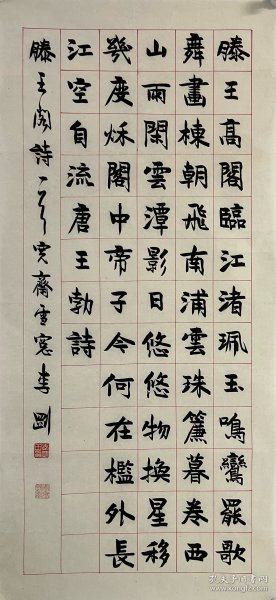 滕王高閣臨江渚珮玉鳴鸞罷歌
舞畫棟朝飛南浦雲珠簾暮卷西
山雨閑雲潭影日悠悠物換星移
幾度秌閣中帝子今何在檻外長
江空自流唐王勃詩
滕王阁詩一首齋雪窓李剛